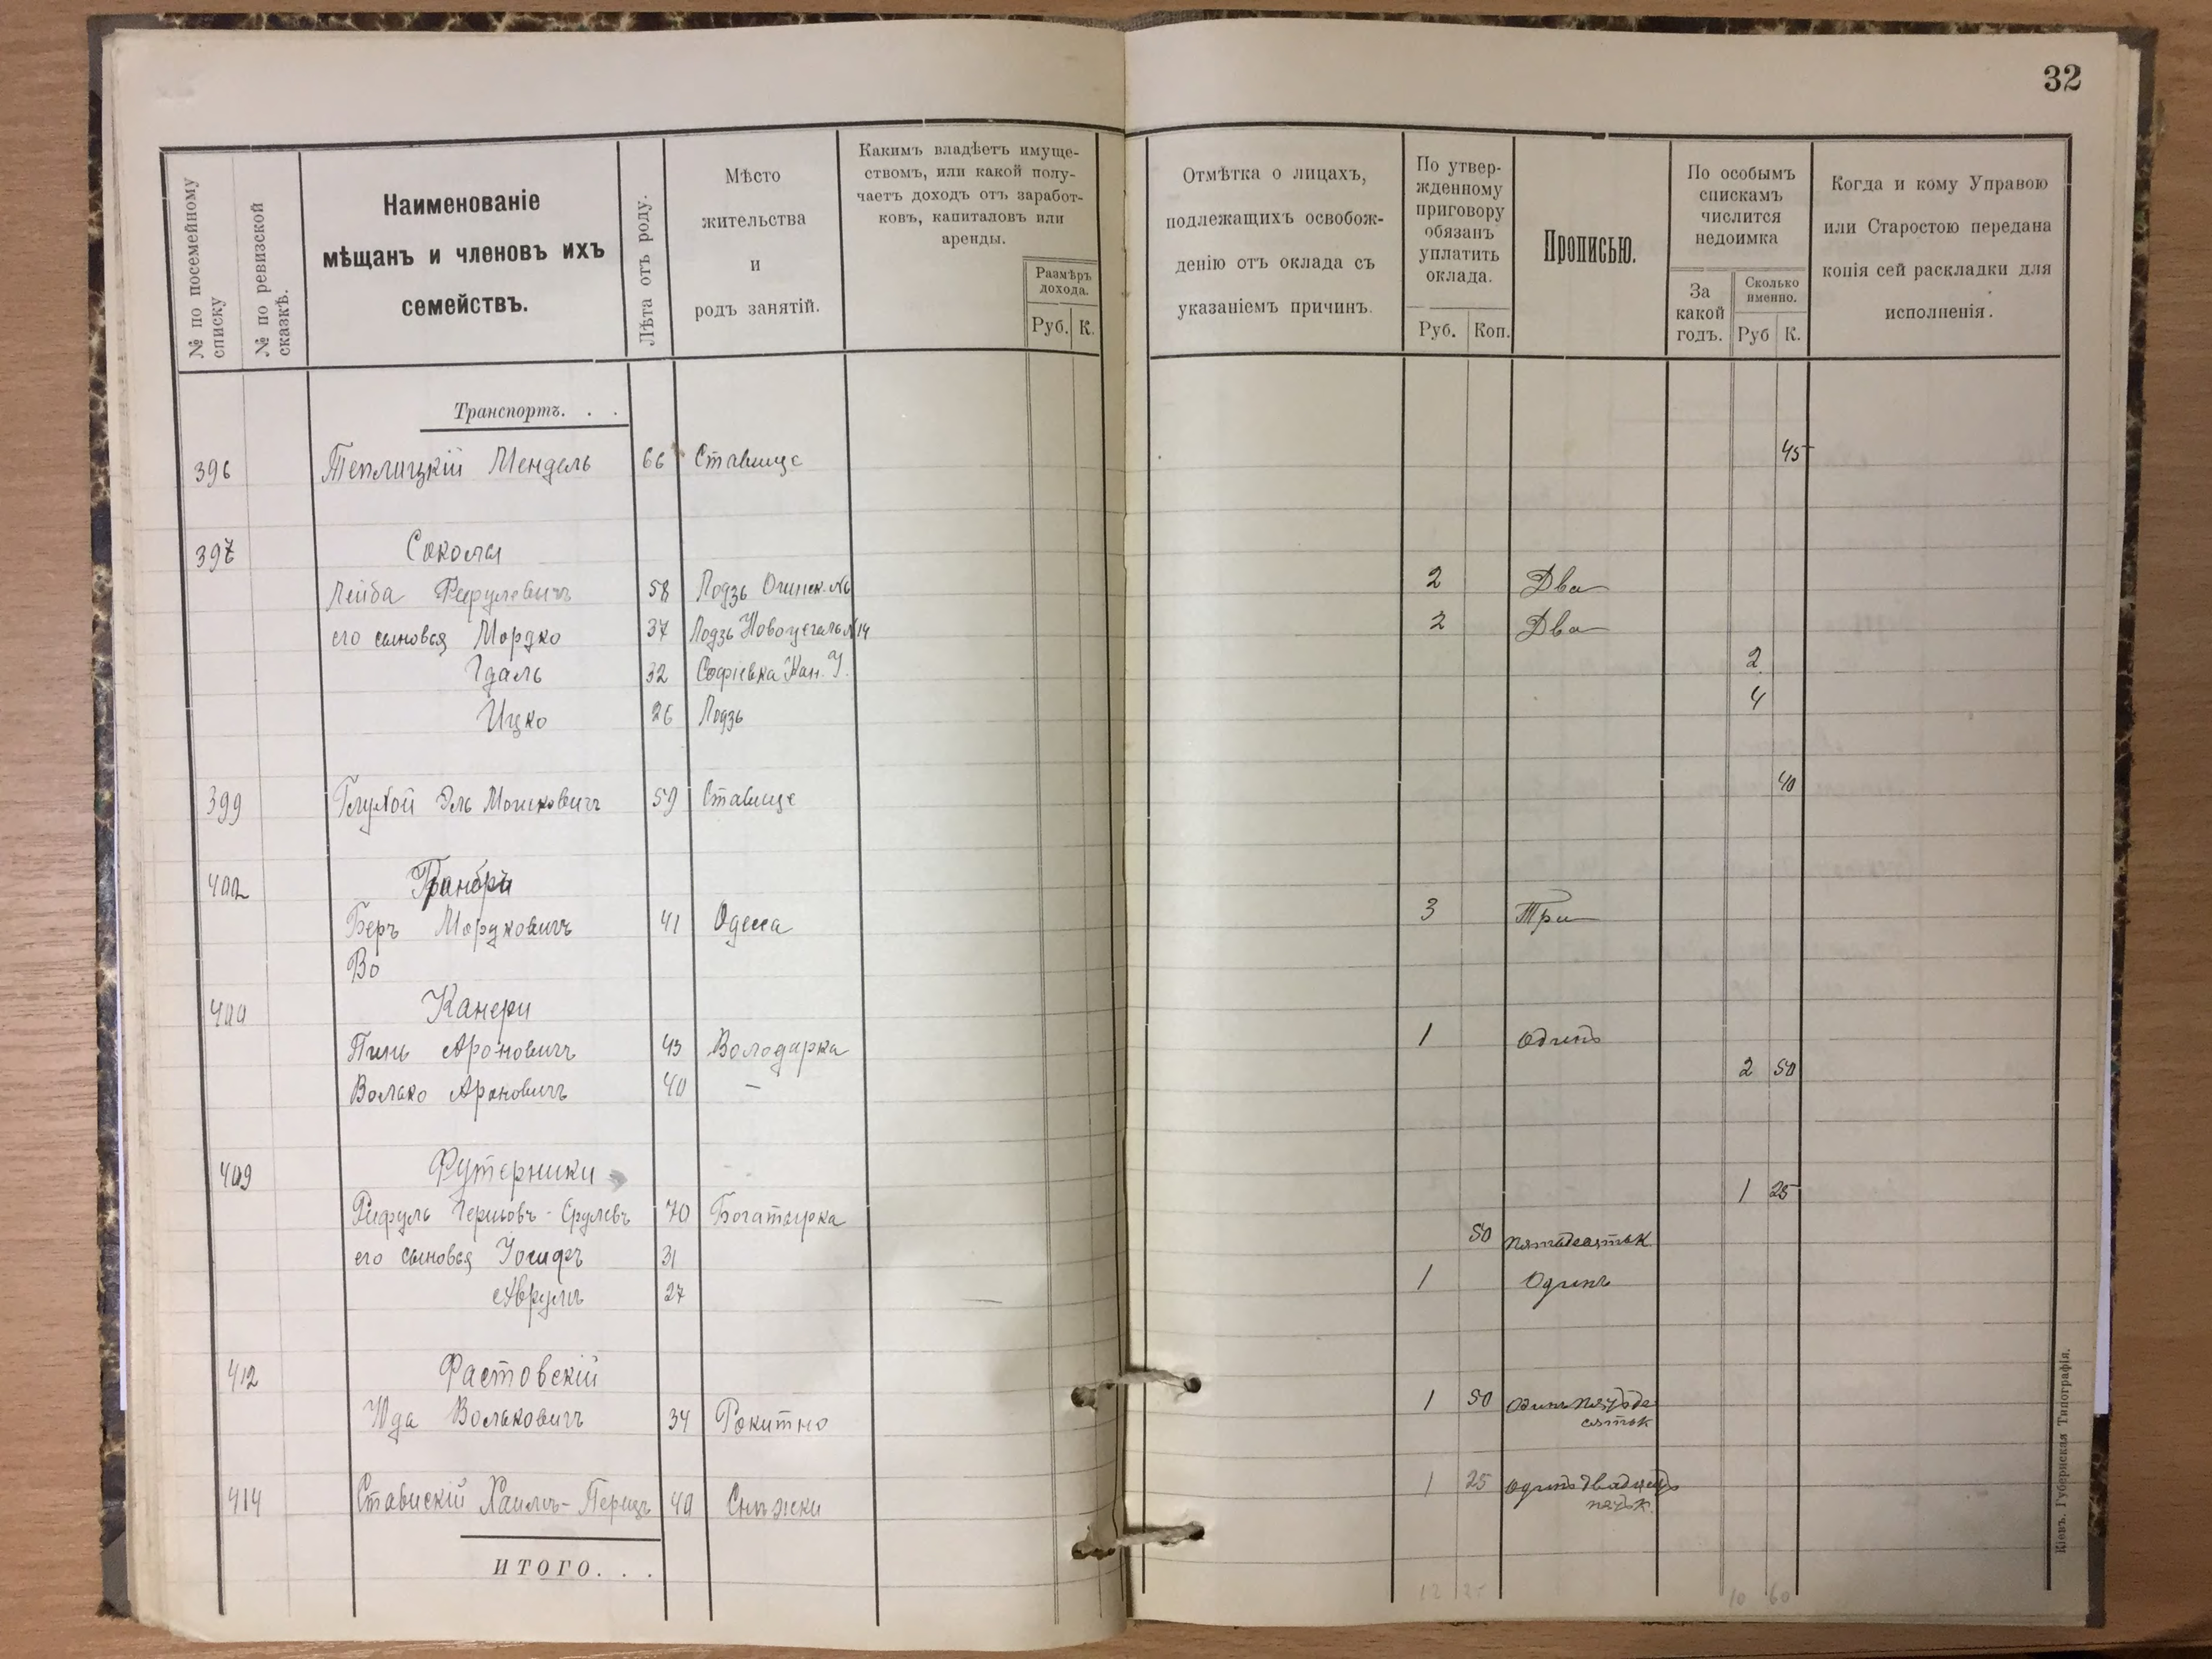 32
№ по посемейному списку
№ по ревизской сказкѣ.
Наименованіе
мѣщанъ и членовъ ихъ
семействъ.
Лѣта отъ роду.
Мѣсто
жительства
и
родъ занятій.
Какимъ владѣетъ имуще-
ствомъ, или какой полу-
чаетъ доходъ отъ заработ-
ковъ, капиталовъ или
аренды.
Размѣръ
дохода.
Руб. К.
Отмѣтка о лицахъ,
подлежащихъ освобож-
денію отъ оклада съ
указаніемъ причинъ.
По утвер-
жденному
приговору
обязанъ
уплатить
оклада.
Руб. Коп.
Прописью.
По особымъ
спискамъ
числится
недоимка
За
какой
годъ.
Сколько
именно.
Руб К.
Когда и кому Управою
или Старостою передана
копія сей раскладки для
исполненія.
Транспортъ. . .
396 Теплицкій Мендель 66 Ставище 45
397 Соколы
Лейба 58 Лодзь 2 Два
его сыновья Мордко 37 Лодзь 14 2 Два
Гдаль 32 Софіевка Кан. У. 2
Ицко 26 Лодзь 4
399 Глухой Эль Мошковичъ 59 Ставище 40
402
Беръ Мордковичъ 41 Одесса 3 Три
Во
400 Канеры
Пинь Ароновичъ 43 Володарка 1 Одинъ
Волько Ароновичъ 40 — 2 50
409 Футерники
70 Богатырка 1 25
его сыновья Іосифъ 31 50 пятьдесятъ к
Аврумъ 27 1 Одинъ
412 Фастовскій
Юда Вольковичъ 34 Рокитно 1 50 Одинъ пятьде
сятъ к
414 Ставискій Хаимъ-Перецъ 40 Снѣжки 1 25 Одинъ двадцать
пять к.
ИТОГО. . .
12 25 10 60
Кіевъ. Губернская Типографія.